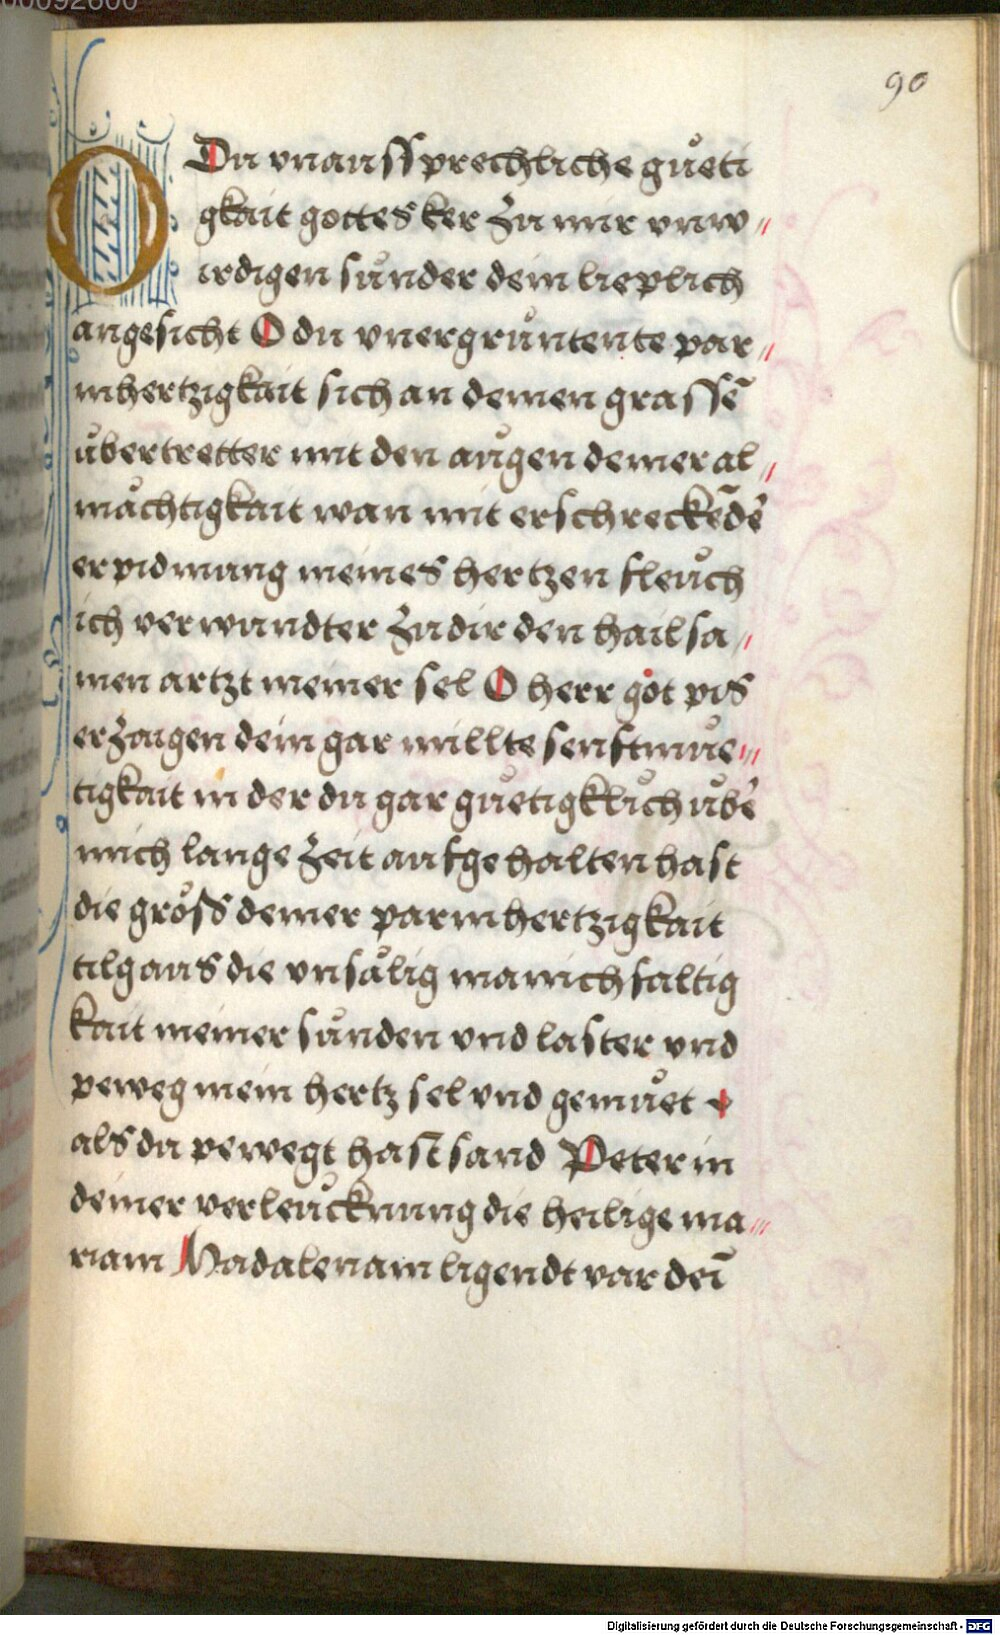 90
O Du vnaussprechliche gueti
gkait gottes ker zu mir vnw〃
irdigen sunder dein lieplich
angesicht O du vnergruntente par〃
mhertzigkait sich an deinen grassē
ůbertretter mit den augen deiner al〃
måchtigkait wan mit erschreckēde᷑
erpidmung meines hertzen fleuch
ich verwundter zu dir den hailsa〃
men artzt meiner sel O herr got pis
erzaigen dein gar millte senftmue〃
tigkait in der du gar guetigklich übe᷑
mich lange zeit aufgehalten hast
die größ deiner parmhertzigkait
tilg aus die vnsålig manichfaltig
kait meiner sunden vnd laster vnd
peweg mein hertz sel vnd gemuet
als du pewegt hast sand Peter in
deiner verleuck̄nung die heilige ma〃
riam Madalenam ligendt var dei᷑
Digitalisierung gefördert durch die Deutsche Forschungsgemeinschaft - DFG